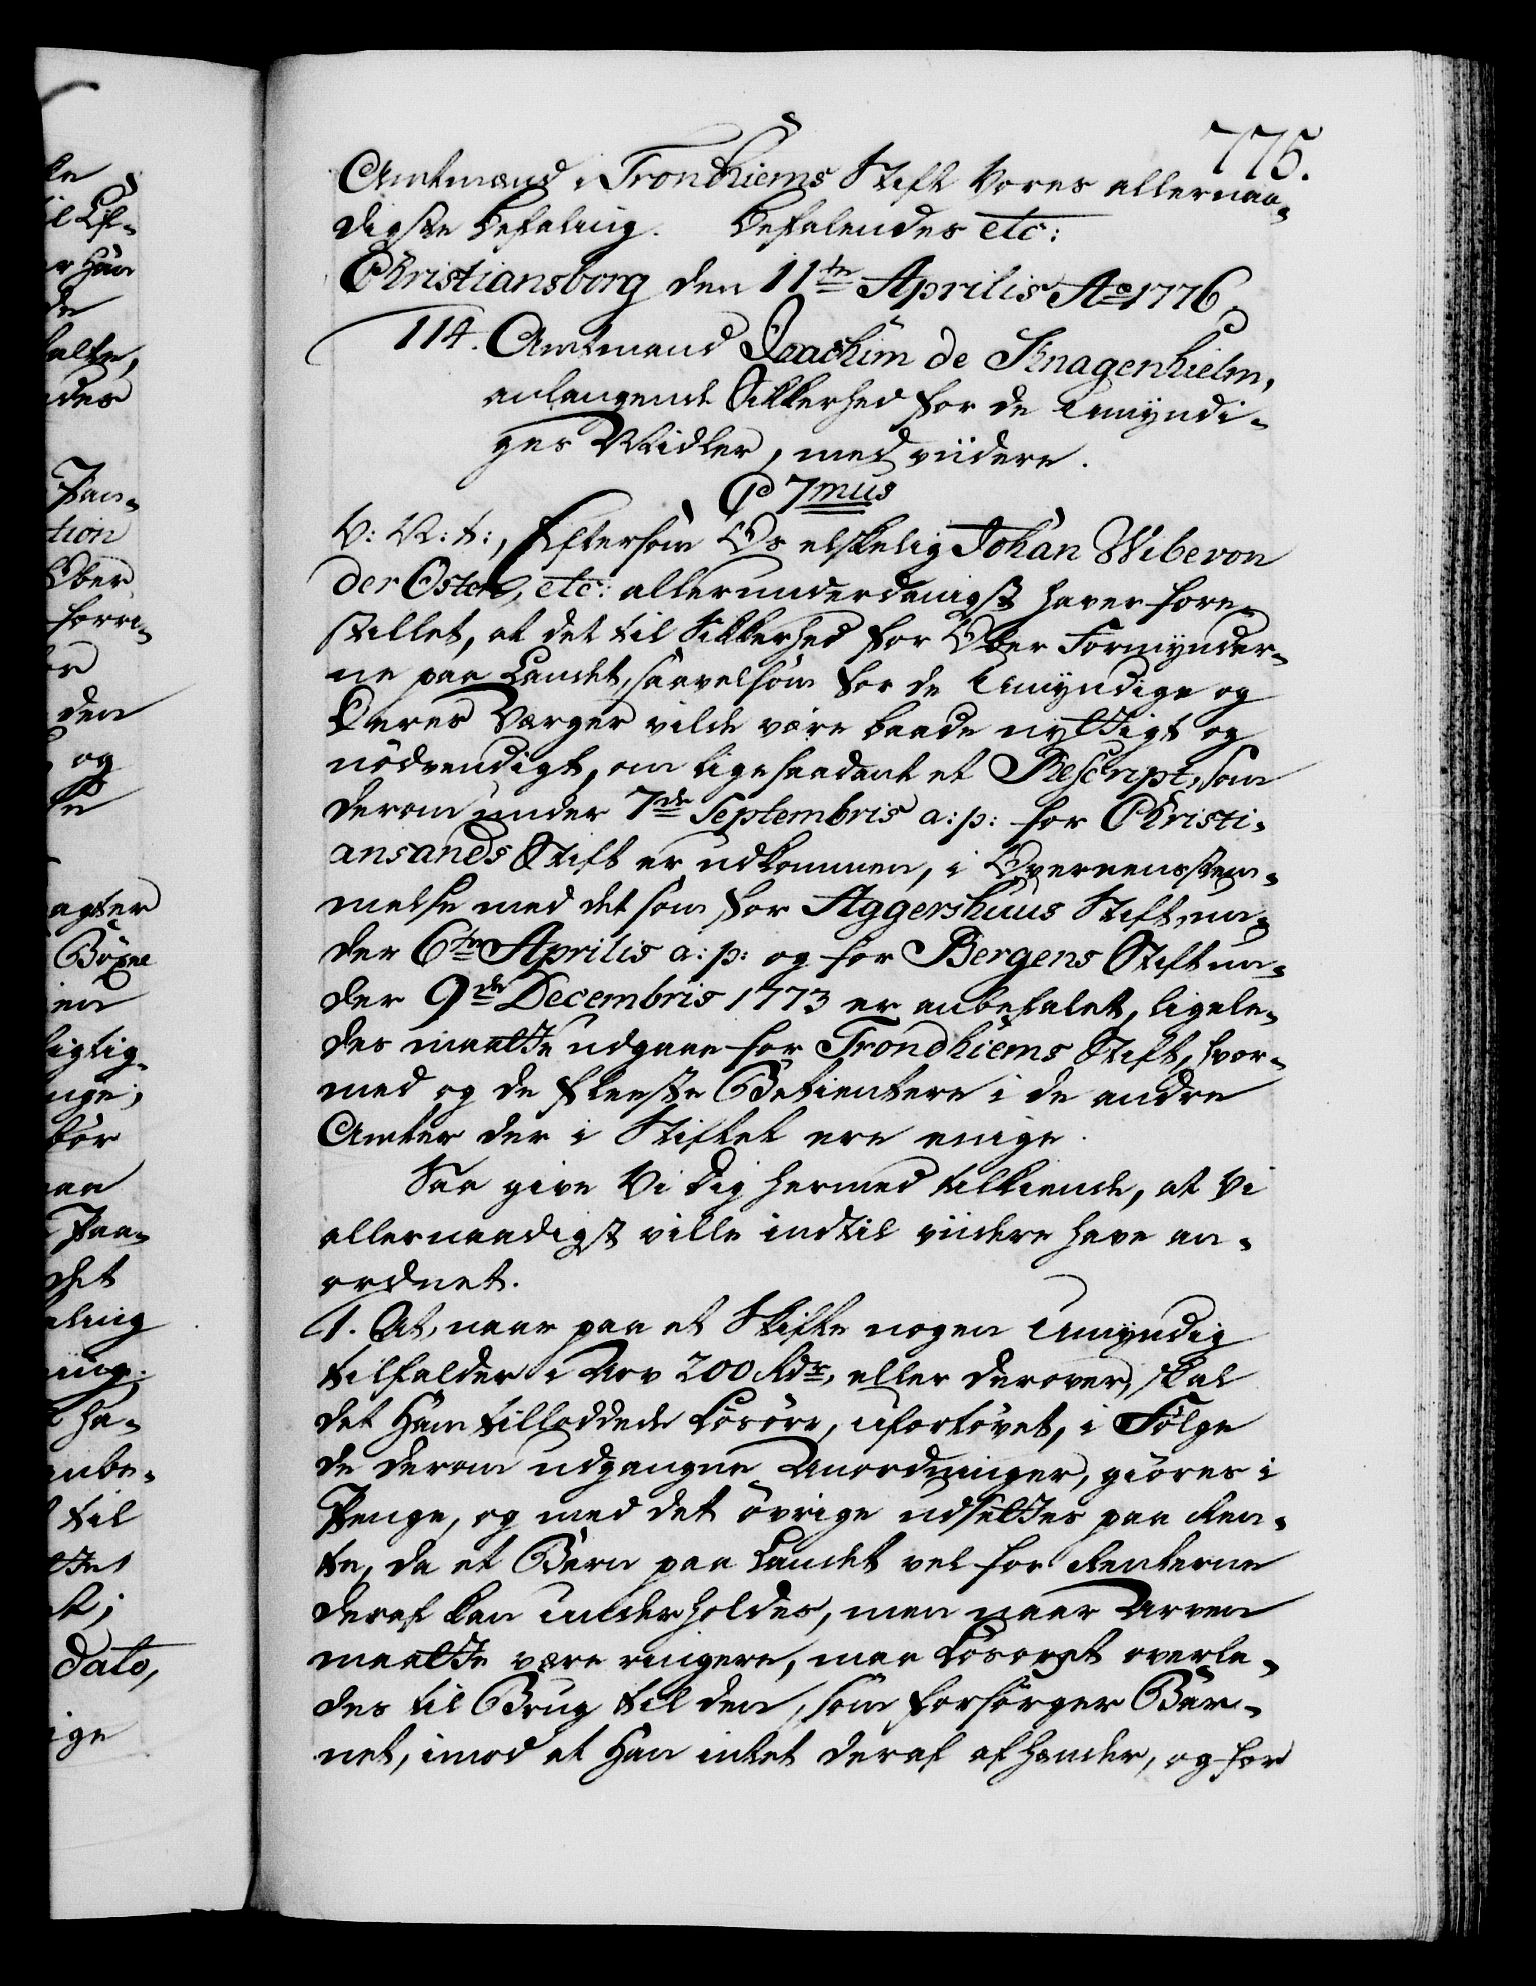 775.
Amtmænd i Trondhiems Stift Vores allernaa-
digste Befaling. Befalendes etc:
Christiansborg den 11te Aprilis Ao 1776.
114. Amtmand Joachim de Knagenhielm,
anlangende Sikkerhed for de Umyndi-
ges Midler, med viidere.
C 7mus
V: A: t:, Eftersom Os elskelig Johan Wibe von
der Osten, etc: allerunderdanigst haver fore-
stillet, at det til Sikkerhed for Over Formynder-
ne paa Landet, saavelsom for de Umyndige og
Deres Værger vilde være baade nyttigt og
nödvendigt, om ligesaadant et Rescript, som
derom under 7de Septembris a: p: for Christi-
ansands Stift er udkommen, i Overeensstem-
melse med det som for Aggershuus Stift un-
der 6te Aprilis a: p: og for Bergens Stift un-
der 9de Decembris 1773 er anbefalet, ligele-
des maatte udgaae for Trondhiems Stift, hvor-
med og de fleeste Betientere i de andre
Amter der i Stiftet ere enige.
Saa give Vi dig hermed tilkiende, at Vi
allernaadigst ville indtil viidere have an-
ordnet.
1. At, naar paa et Skifte nogen Umyndig
tilfalder i Arv 200 Rdr, eller derover, skal
det Ham tilloddede Lösöre, ufortövet, i Fölge
de derom udgangne Anordninger, giöres i
Penge, og med det övrige udsættes paa Ren-
te, da et Barn paa Landet vel for Renterne
deraf kan underholdes, men naar Arven
maatte være ringere, maa Lösöret overla-
des til Brug til den, som forsörger Bar-
net, imod at Han intet deraf afhænder, og for